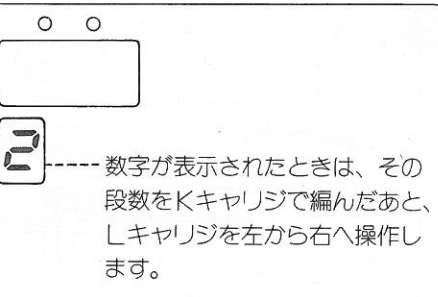 2
数字が表示されたときは、その
段数をKキャリジで編んだあと、
Lキャリジを左から右へ操作し
ます。